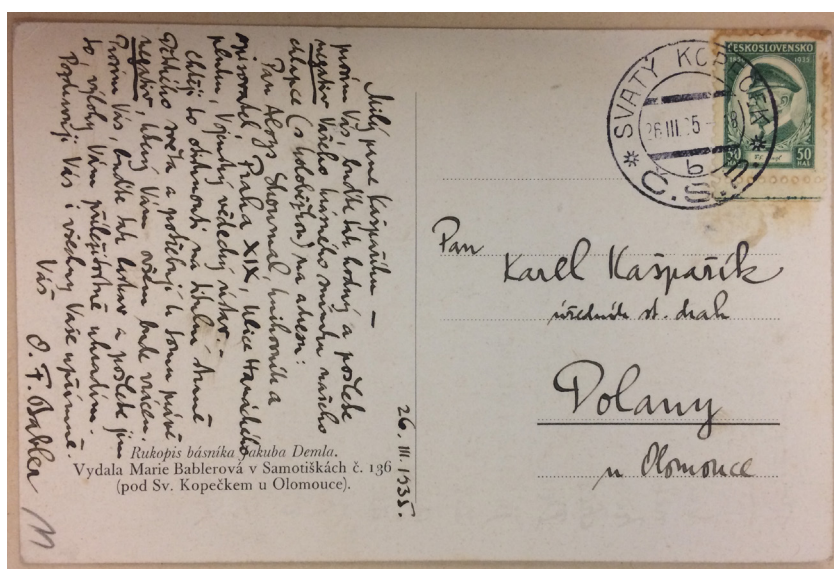 Milý pane Kašpaříku —
prosím Vás, buďte tak hodný a pošlete
negativ Vašeho krásného snímku našeho
chlapce (s koloběžkou) na adresu:
Pan Aloys Skoumal knihovník a
spisovatel, Praha XIX, ulice
pluku, Vojenský vědecký ústav.-
Chtějí to otisknouti na titulní straně
Dětského světa a potřebují k tomu právě
negativ, který Vám ovšem bude vrácen.
Prosím Vás, buďte tak laskav a pošlete jim
to, výlohy Vám příležitostně uhradím.
Pozdravuji Vás i všechny Vaše upřímně.
Váš
O. F. Babler
26. III. 1935.
Rukopis básníka Jakuba Demla.
Vydala Marie Bablerová v Samotiškách č. 136
(pod Sv. Kopečkem u Olomouce).
SVATÝ KOPEČEK
26 III. 35
b
Č.S.R.
ČESKOSLOVENSKO
1935
50 50
HAL HAL
Pan
Karel Kašpařík
úředník st. drah
Dolany
u Olomouce